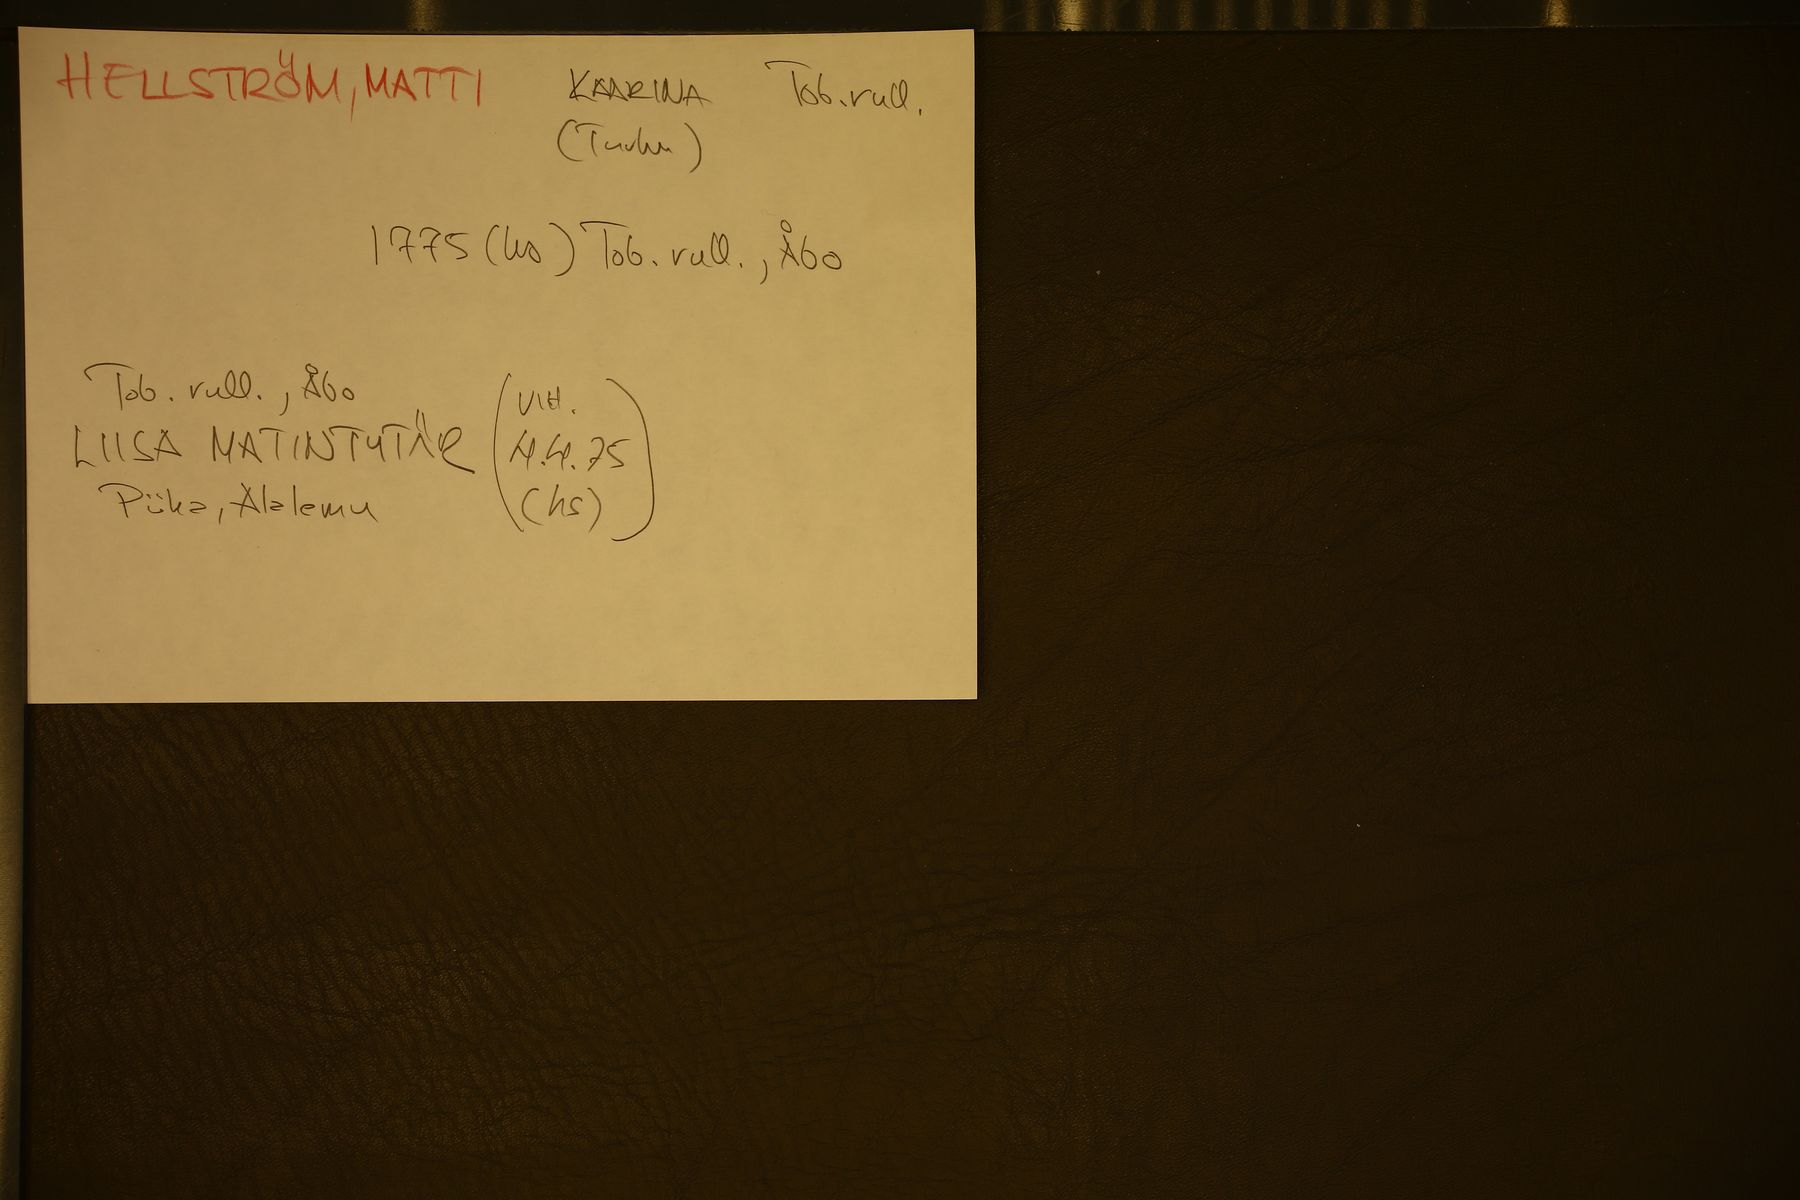 HELLSTRÖM, MATTI KAARINA Tob.rull.
(Turku)
1775 (hs) Tob. rull., Åbo
Tob. rull., Åbo
LIISA MATINTYTÄR
Piika, Ålalemu
(VIH.
4.4.75
(hs))